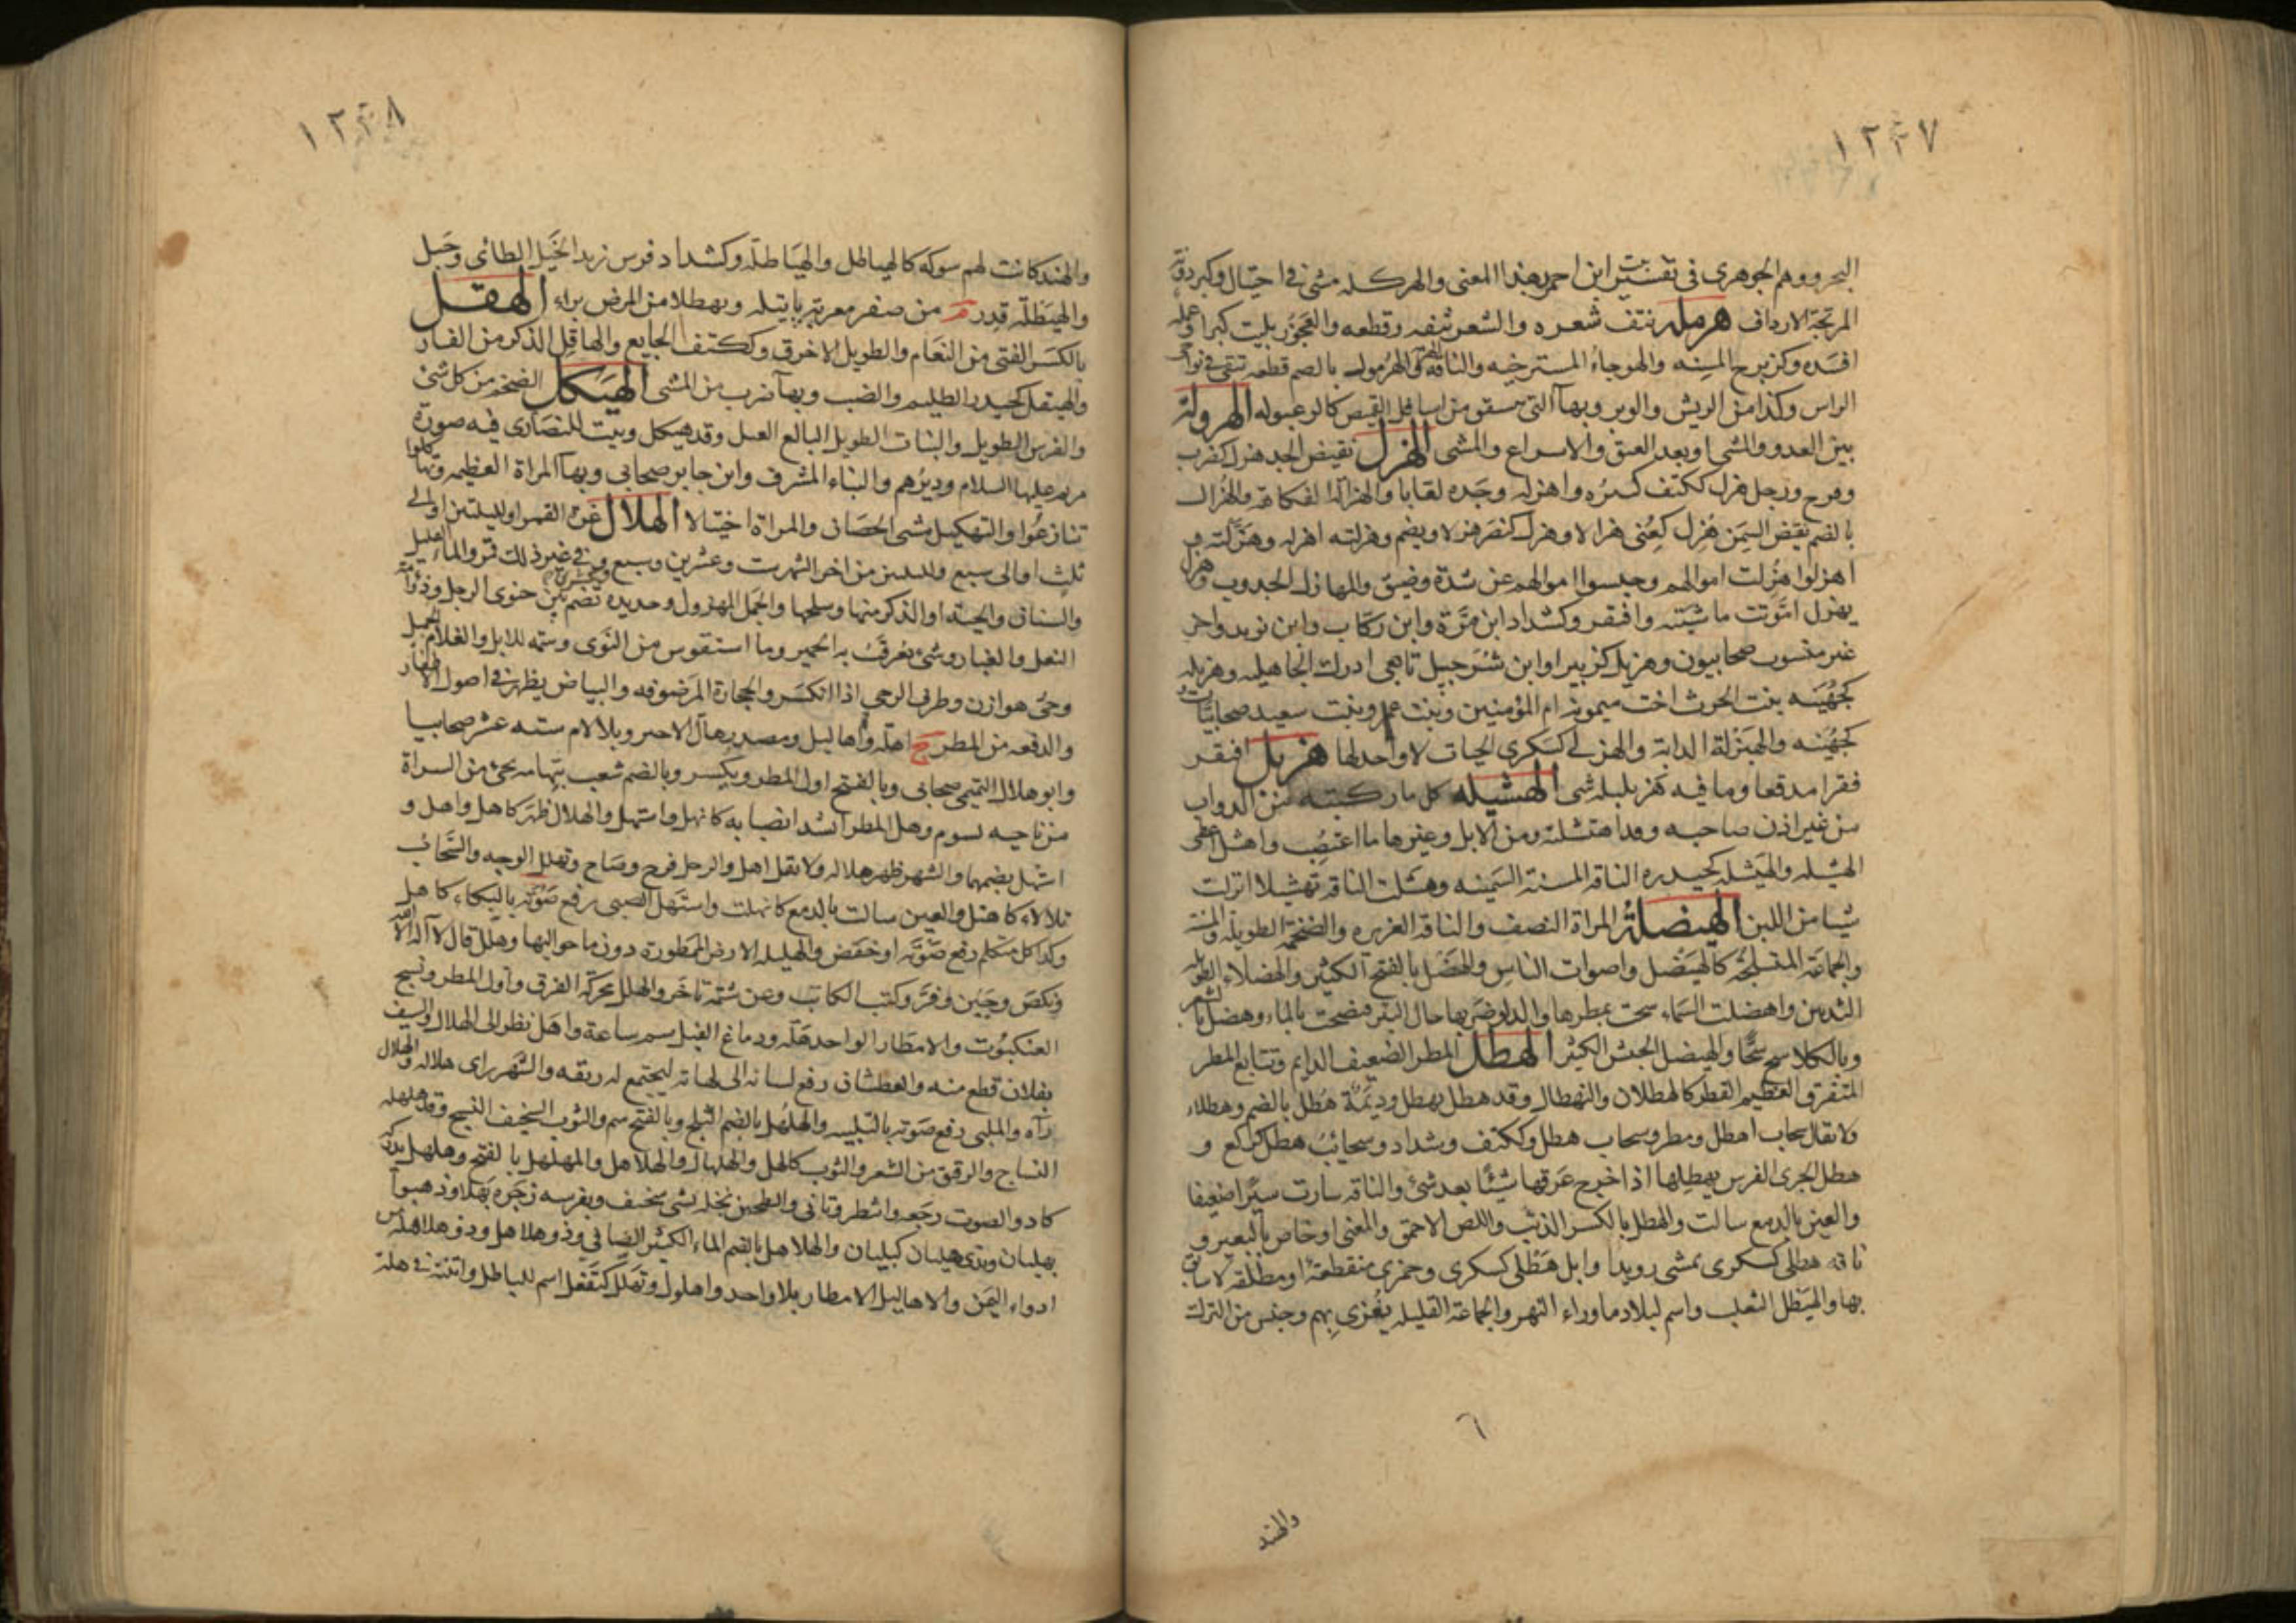 ١٢٣٧
البحر ووهم الجوهري في تفسير بيت ابن احمر بهذا المعنى والهركلة مشى في اختيال وكبردونة
المرتجة الارداف هرمله نتف شعره والشعر نتفه وقطعه والعجوز بليت كبرا وعمله
افسده وكزبرج المسنة والهوجاء المسترخيه والناقة الهرمة والهرمول بالضم قطعه تبقى في نواحي
الراس وكذا من الريش والوبر وبهآ التي تنشق من اسافل القميص كالرعبوله الهرولة
بين العدو والمشى او بعد العنق والاسراع والمشى الهزل نقيض الجد هزل كضرب
وفرح ورجل هزل ككتف كثيره واهزله وجده لعابا والهزالة الفكاهة والهزال
بالضم نقيض السمن هزل كعنى هزالا وهزل كنصر هزلا ويضم وهزلته اهزله وهزلته و
اهزلوا هزلت اموالهم وحبسوا اموالهم عن شدة وضيق والمهازل الجدوب وهزل
يهزل اموتت ماشيته وافتقر وكشداد ابن مرة وابن ذياب وابن نويد واخر
غير منسوب صحابيون وهزيل كزبير او ابن شرحبيل تابعي ادرك الجاهيليه وهزيله
كجهينه بنت الحرث اخت ميمونه ام المؤمنين وبنت عمرو وبنت سعيد صحابيات و
كجهينه والهيزلة الداية والهزلى كسكرى الحيات لا واحد لها هزبل افتقر
فقرا مدقعا وما فيه هزبليلة شى الهشيله كل ما ركبته من الدواب
من غير اذن صاحبه وقد اهتشلته ومن الابل وغيرها ما اغتصب واهشل اعطى
الهشيله والهيشله كحيدره الناقه المسنة السمينه وهشلت الناقة تهشيلا انزلت
شيا من اللبن الهيضلة المراة النصف والناقه الغزيره والضخمة الطويلة والمسنة
والجماعة المتسلحة كالهيضل واصوات الناس والهضل بالفتح الكثير والهضلاء الطويله
الثديين واهضلت السماء سحت بمطرها والدلو ضربها حال البئر فنضحت بالماء وهضل بالشعر
وبالكلام سح سحا والهيضل الجيش الكثير الهطل المطر الضعيف الدايم وتتابع المطر
المتفرق العظيم القطر كالهطلان والتهطال وقد هطل يهطل وديمة هطل بالضم وهطلاء
ولا يقال سحاب اهطل ومطر وسحاب هطل وككتف وشداد وسحائب هطل كركع و
هطل الجرى الفرس يهطلها اذا اخرج عرقها شيئا بعد شئ والناقه سارت سيرا ضعيفا
والعين بالدمع سالت والهطل بالكسر الذئب واللص الاحمق والمعنى او خاص بالبعير و
ناقه هطلى كسكرى تمشى رويدا وابل هطلى كسكرى وجمزى منقطعة او مطلقة لا سائق
بها والهيطل الثعلب واسم لبلاد ما وراء النهر والجماعة القليله يغزى بهم وجنس من الترك
٦
والهند
١٢٣٨
والهند كانت لهم شوكة كالهياطل والهياطلة وكشداد فرس زيد الخيل الطائى وجبل
والهيطلة قدر م من صفر معربته باتيله وتهطلا من المرض براء الهقل
بالكسر الفتى من النعام والطويل الاخرق وككتف الجايع والهاقل الذكر من الفار
والهيقل كحيدر الظليم والضب وبهآ ضرب من المشى الهيكل الضخم من كل شئ
والفرس الطويل والنبات الطويل البالغ العبل وقد هيكل وبيت للنصارى فيه صورة
مريم عليها السلام وديرهم والبناء المشرف وابن جابر صحابى وبهآ المراة العظيمه وتهاكلوا
تنازعوا والتهيكل مشى الحصان والمراة اختيالا الهلال غرة القمر او لليلتين او الى
ثلث او الى سبع ولليلتين من اخر الشهر ست وعشرين وسبع وعشرين وفي غير ذلك قمر والماء القليل
والسنان والحية او الذكر منها وسلخها والجمل المهزول وحديده تضم بين حنوى الرحل وذؤابة
النعل والغبار وشئ يعرقب به الحمير وما استقوس من النوى وسمة للابل والغلام الجميل
وحى هوازن وطرف الرحى اذا انكسر والحجارة المرصوفه والبياض يظهر في اصول الاظفار
والدفعه من المطر ج اهلة واهاليل ومصدر هال الاجير وبلا لام ستة عشر صحابيا
وابو هلال التميمى صحابى وبالفتح اول المطر ويكسر وبالضم شعب بتهامه يجئ من السراة
من ناحية يسوم وهل المطر اشتد انصبابه كانهل واستهل والهلال ظهر كاهل واهل و
استهل بضمهما والشهر ظهر هلاله ولا تقل اهل والرجل فرح وصاح وتهلل الوجه والسحائب
تلالاء كاهتل والعين سالت بالدمع كانهلت واستهل الصبى رفع صوته بالبكاء كاهل
وكذا كل متكلم رفع صوته او خفض والهليله الارض الممطورة دون ما حواليها وهلل قال لا اله الا الله
ونكص وجبن وفر وكتب الكتاب وعن شتمه تاخر والهلل محركة الفرق واول المطر ونسج
العنكبوت والامطار الواحد هلة ودماغ الفيل سم ساعة واهل نظر الى الهلال والسيف
بفلان قطع منه والعطشان رفع لسانه الى لهاته ليجتمع له ريقه والشهر راى هلاله والهلال
رآه والملبى رفع صوته بالتلبيه والهلهل بالضم الثلج وبالفتح سم والثوب السخيف النسج وقد هلهله
النساج والرقيق من الشعر والثوب كالهل والهلهال والهلاهل والمهلهل بالفتح وهلهل يدركه
كاد والصوت رجعه وانتظر وتانى والطحين نخله بشى سخيف وبفرسه زجره بهلا وذهبوا
بهليان وبذى هليان كبليان والهلاهل بالضم الماء الكثير الصافى وذو هلاهل وذو هلاهله من
ادواء اليمن والاهاليل الامطار بلا واحد واهلول وتهلل كتفعل اسم للباطل واتيته في هلة